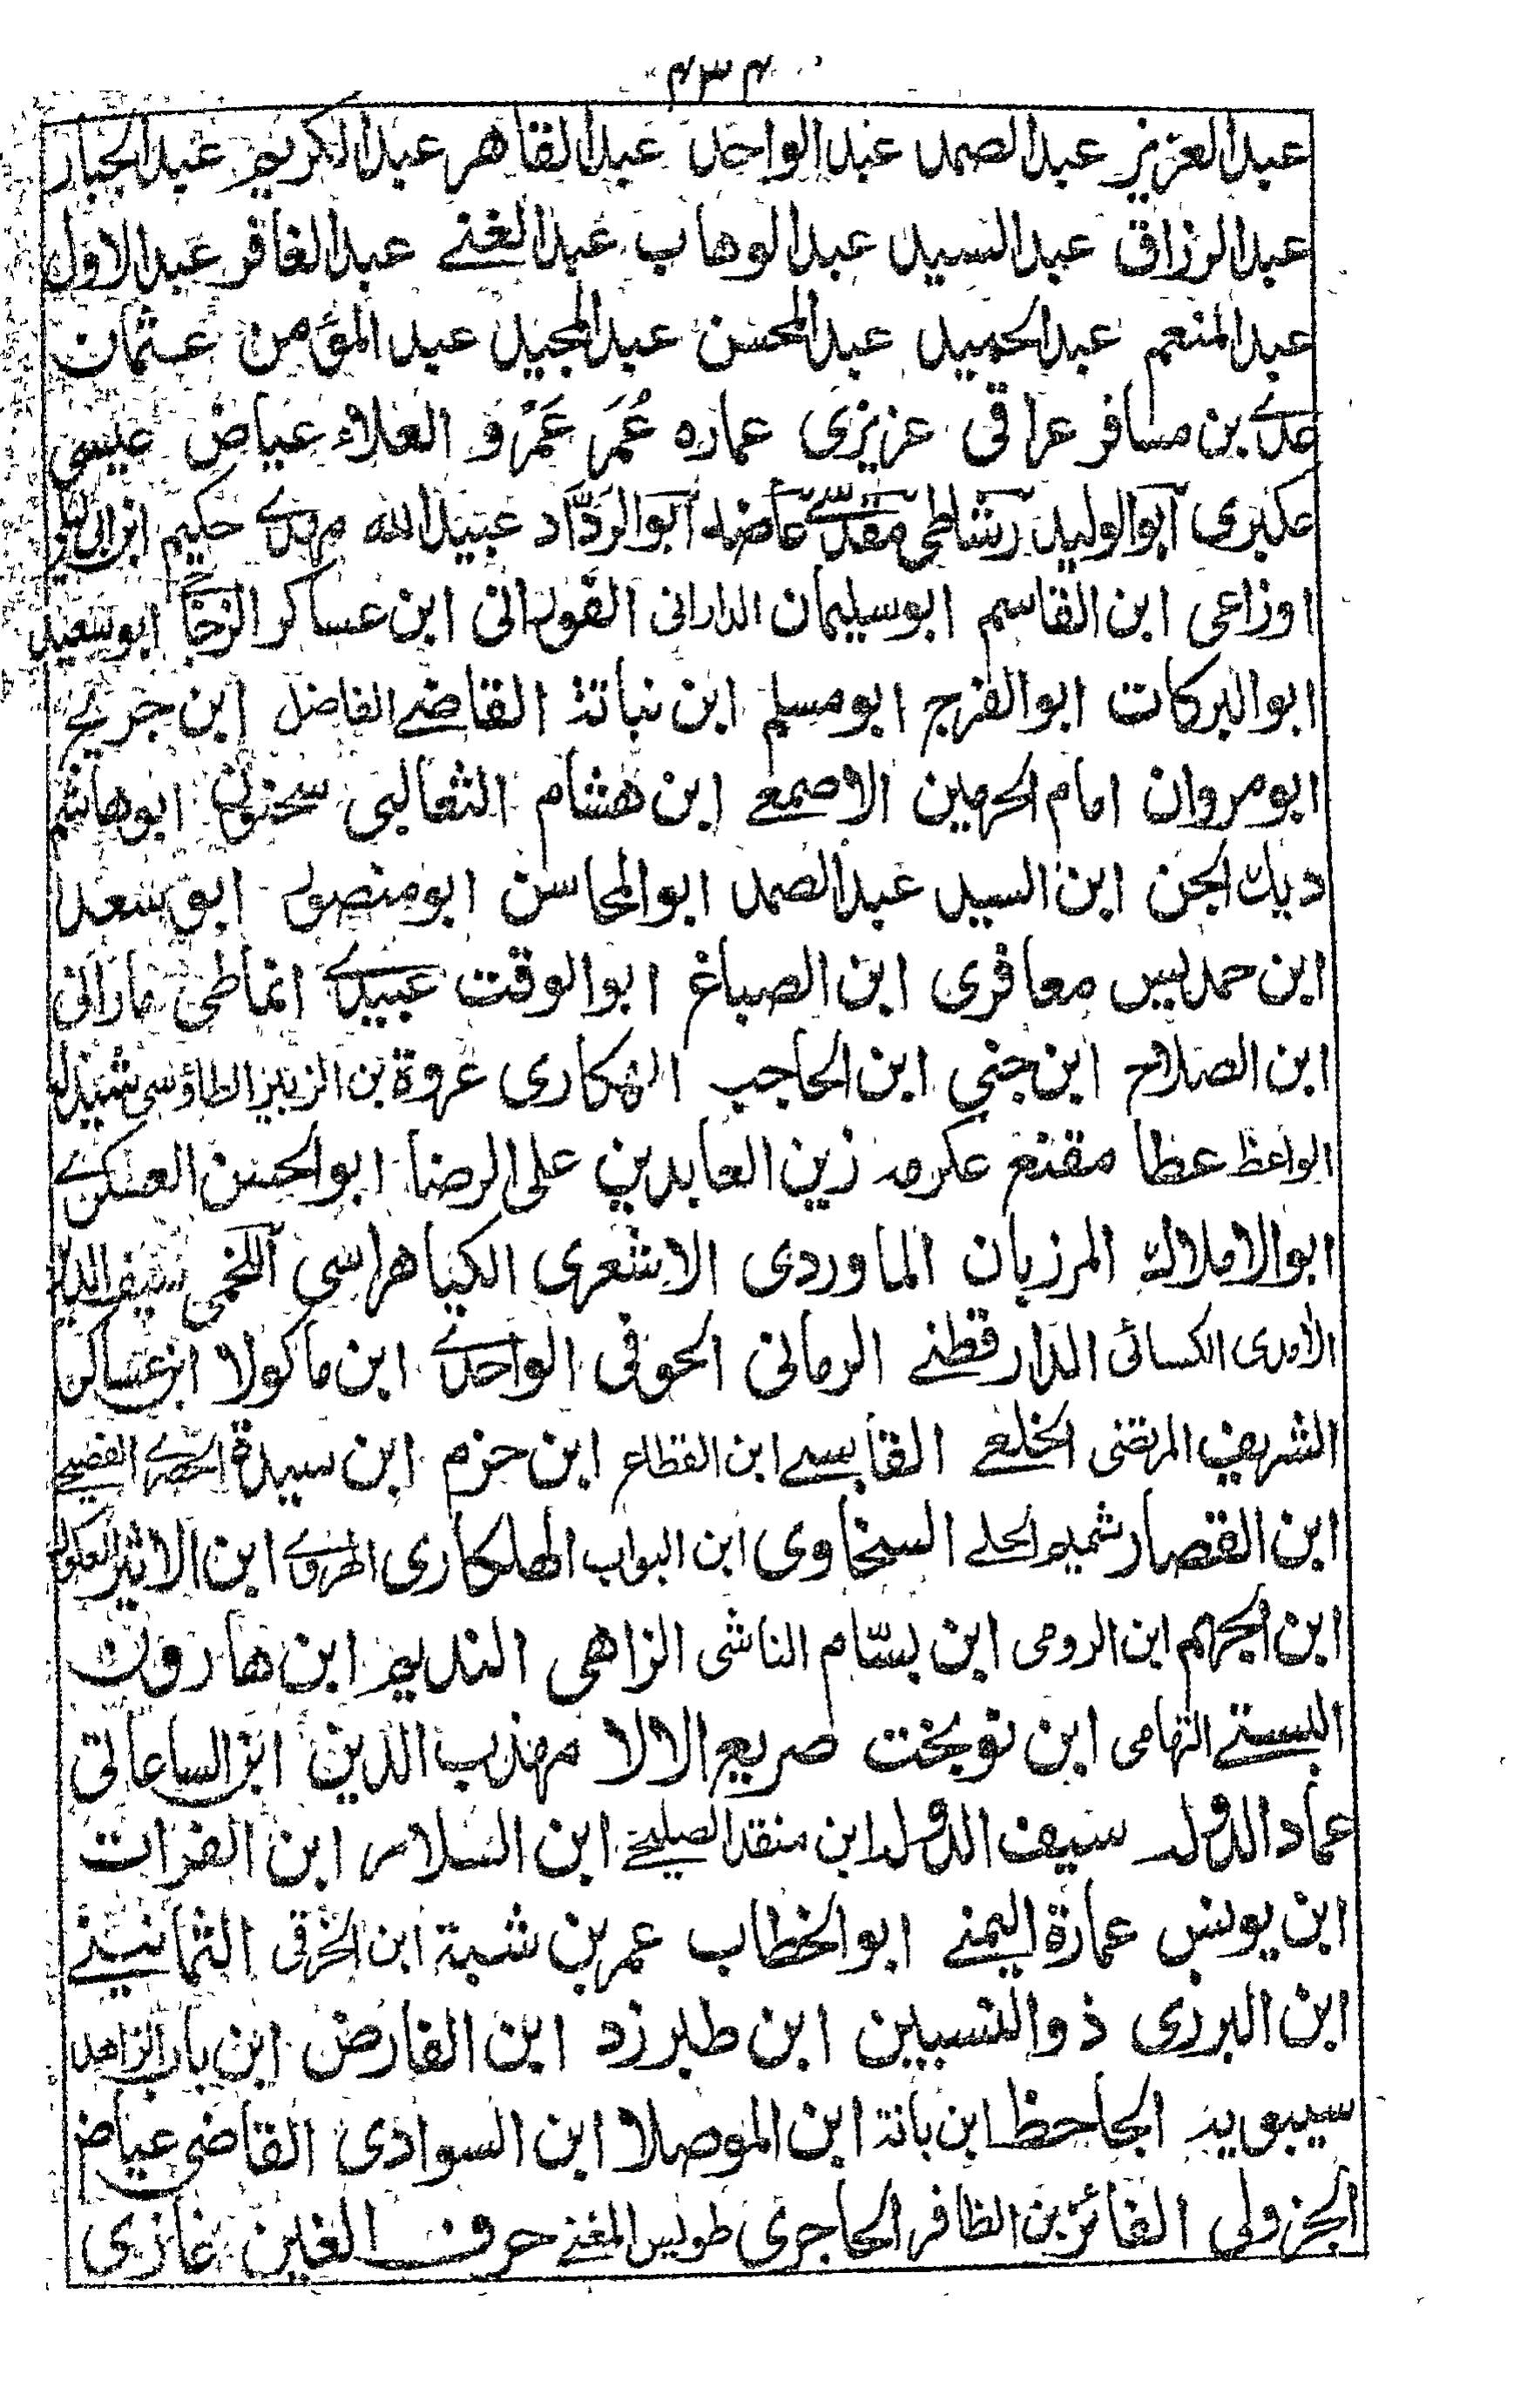 ۴۳۴
عبدالعزیز عبدالصمد عبدالواحد عبدالقاهر عبدالکریم عبدالجبار
عبدالرزاق عبدالسید عبدالوهاب عبدالغنے عبدالغافر عبدالاول
عبدالمنعم عبدالحمید عبدالمحسن عبدالمجید عبدالمؤمن عثمان
عدے بن مسافر عراقی عزیزی عماره عُمَر عَمْرو العلاء عیاض عیسی
عکبری ابوالولید رشاطی مقدسے عاضد ابوالردّاد عبیدالله مهدے حکیم
اوزاعی ابن القاسم ابوسلیمان الدارانی الفورانی ابن عساکر الزجاجی ابوسعید
ابوالبرکات ابوالفرج ابومسلم ابن نباتة القاضے الفاضل ابن جریج
ابومروان امام الحرمین الاصمعے ابن هشام الثعالبی سحنون ابوهاشم
دیك الجن ابن السید عبدالصمد ابوالمحاسن ابومنصور ابوسعد
ابن حمدیس معافری ابن الصباغ ابوالوقت عبیدے انماطی مارانی
ابن الصلاح ابن جنی ابن الحاجب الهکاری عروة بن الزبیر الطاؤسی شیذله
الواعظ عطا مقنع عکرمه زین العابدین علی الرضا ابوالحسن العسکرے
ابوالاملاك المرزبان الماوردی الاشعری الکیاهراسی اللخمی سیف الدین
الآمدی الکسائی الدارقطنے الرمانی الحوفی الواحدے ابن ماکولا ابن عساکر
الشریف المرتضی الخلعے القابسے ابن القطاع ابن حزم ابن سیدة الحصرے الفصیحے
ابن القصار شمیم الحلے السخاوی ابن البواب الهلکاری الهروے ابن الاثیر العکوك
ابن الجهم ابن الرومی ابن بسّام الناشی الزاهی الندیم ابن هارون
البستے التهامی ابن نوبخت صریع الالا مهذب الدین ابن الساعاتی
عماد الدوله سیف الدوله ابن منقد الصلیحے ابن السلار ابن الفرات
ابن یونس عمارة الیمنے ابوالخطاب عمر بن شبة ابن الخرقی الثمانینے
ابن البرزی ذوالنسبین ابن طبرزد ابن الفارض ابن یار الزاهد
سیبویه الجاحظ ابن بانة ابن الموصلا ابن السوادی القاضی عیاض
الجزولی الفائز بن الظافر الحاجری طویس المغنے حرف الغین غازی